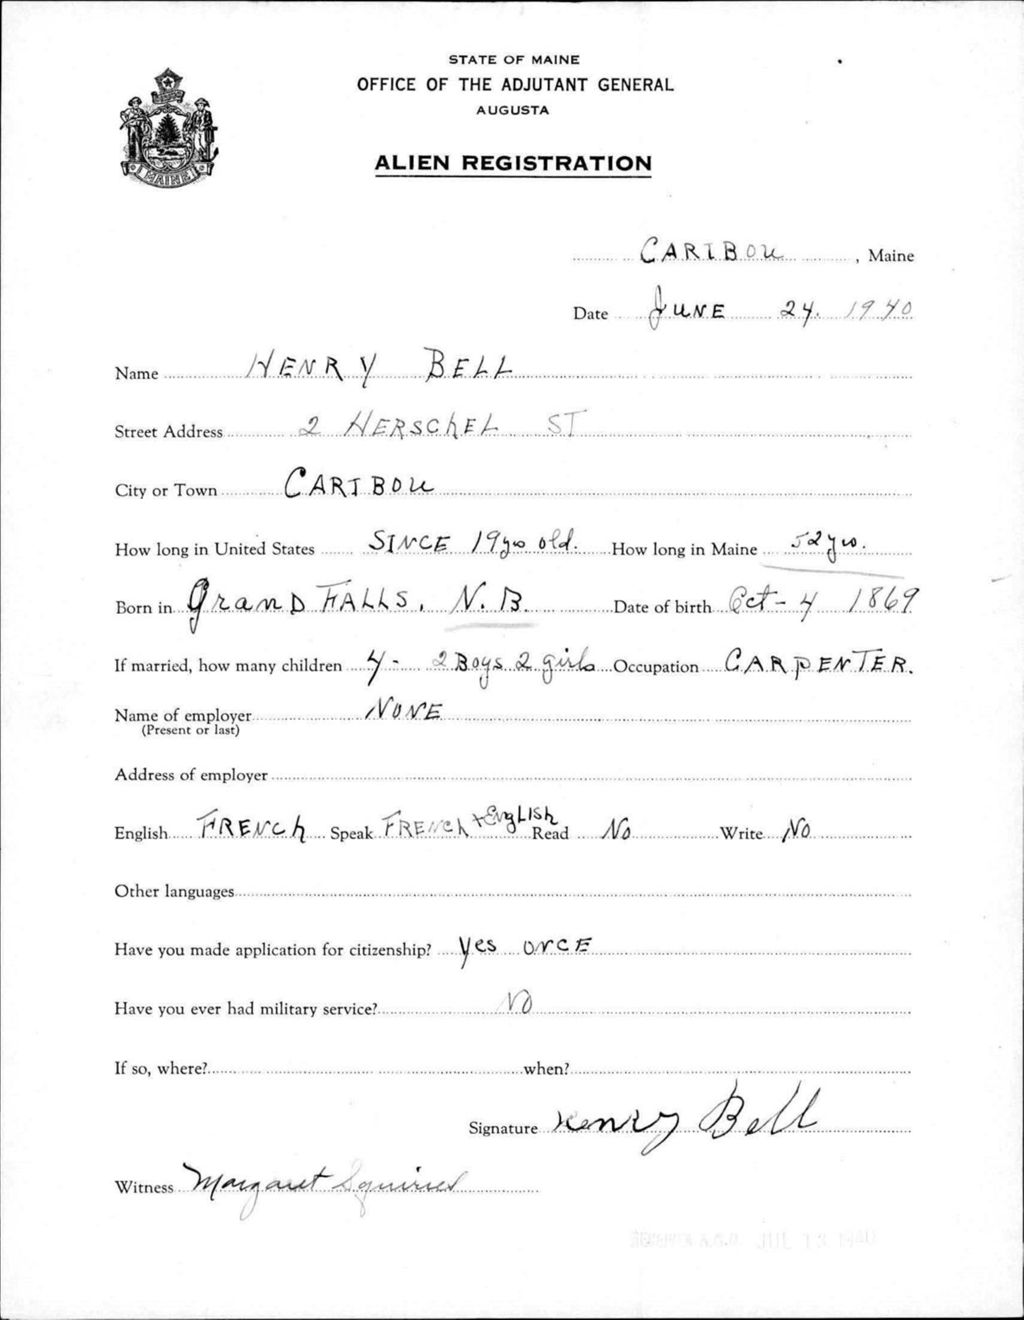 STATE OF MAINE
OFFICE OF THE ADJUTANT GENERAL
AUGUSTA
ALIEN REGISTRATION
MAINE
CARIBOU, Maine
Date JUNE 24. 1940
Name HENRY BELL
Street Address 2 HERSCHEL ST
City or Town CARIBOU
How long in United States SINCE 19 yrs old. How long in Maine 52 yrs.
Born in Grand FALLS, N.B. Date of birth Oct - 4 1869
If married, how many children 4 - 2 Boys 2 girls Occupation CARPENTER.
Name of employer NONE
(Present or last)
Address of employer
English FRENCH Speak FRENCH + EnglISh Read No Write No
Other languages
Have you made application for citizenship? Yes ONCE
Have you ever had military service? NO
If so, where? when?
Signature Henry Bell
Witness Margaret Squires
JUL 13 1940